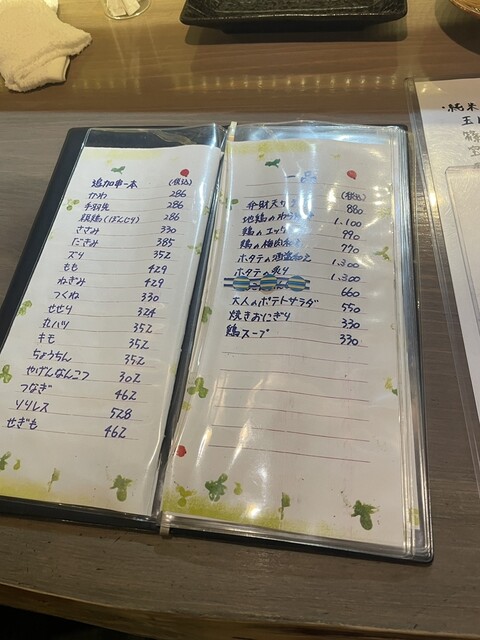 追加串一本 (税込)
かわ 286
手羽先 286
親鶏(ぼんじり) 286
ささみ 330
だきみ 385
ズリ 352
もも 429
ねぎみ 429
つくね 330
せせり 324
丸ハツ 352
キモ 352
ちょうちん 352
やげんなんこつ 302
つなぎ 462
ソリレス 528
せぎも 462
一品
(税込)
880
地鶏の 1,100
鶏の 990
鶏の梅肉和え 770
ホタテの 1,300
ホタテの 1,300
660
大人のポテトサラダ 550
焼きおにぎり 330
鶏スープ 330
・純米